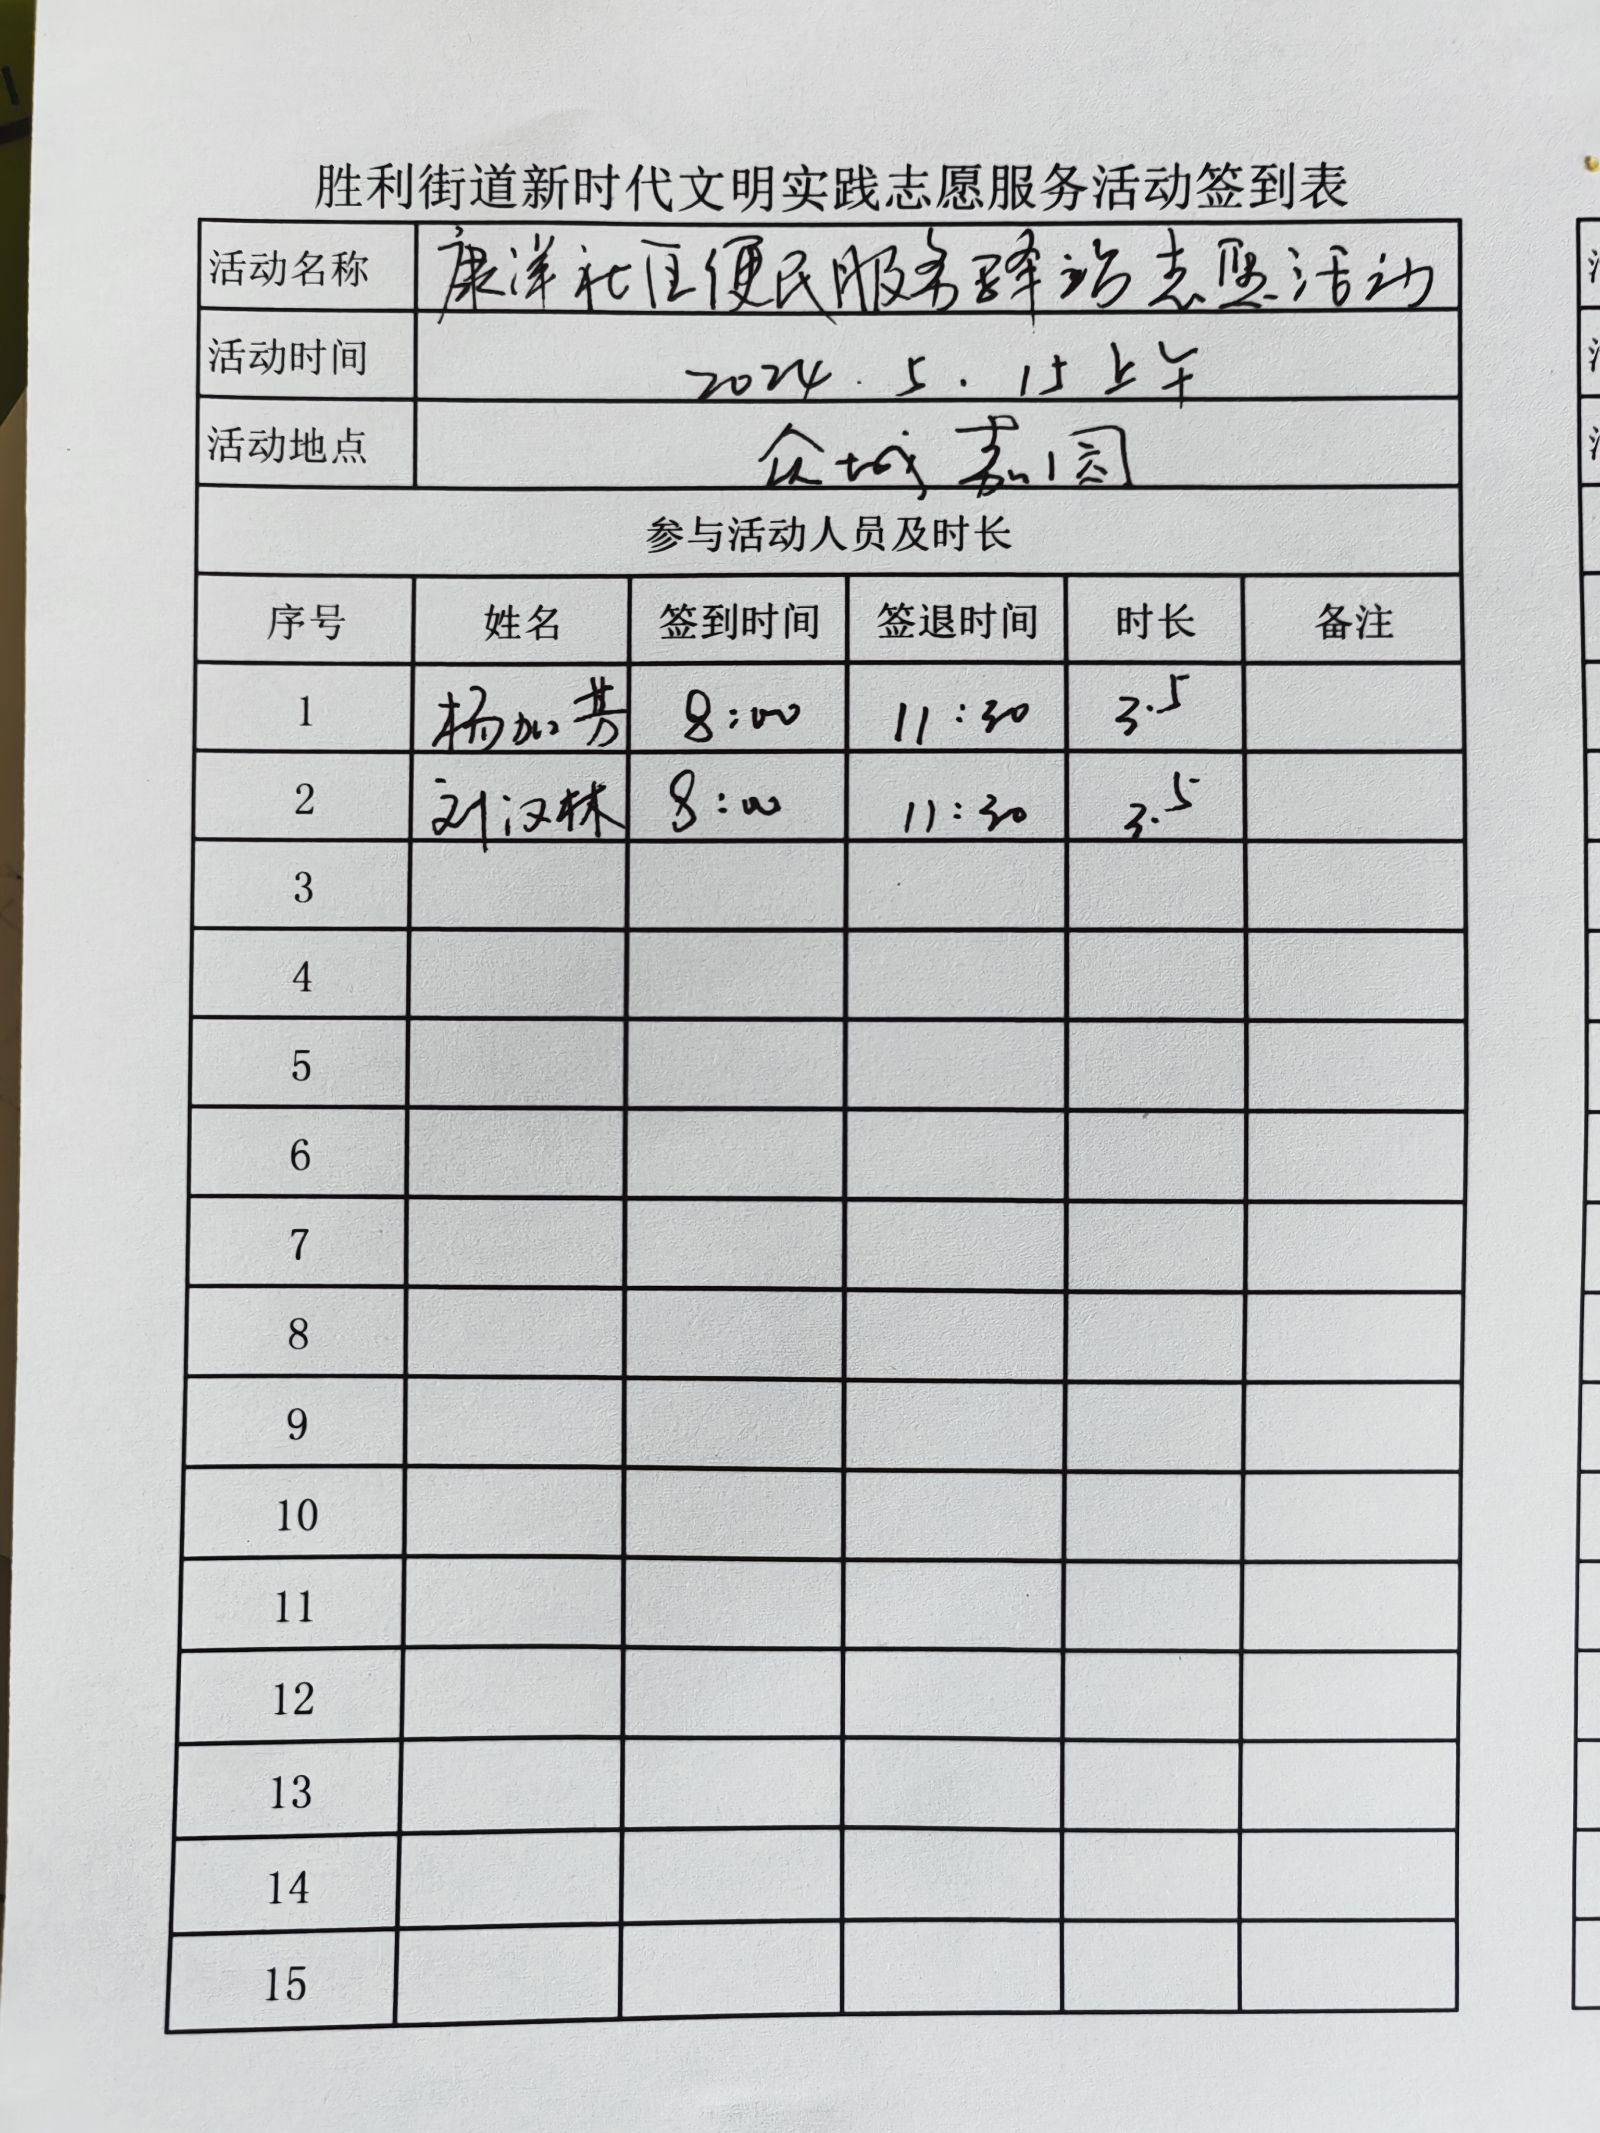 胜利街道新时代文明实践志愿服务活动签到表
活动名称 康洋社区便民服务驿站志愿活动
活动时间 2024.5.15上午
活动地点 众城嘉园
参与活动人员及时长
序号 姓名 签到时间 签退时间 时长 备注
1 杨加芳 8:00 11:30 3.5
2 刘汉林 8:00 11:30 3.5
3
4
5
6
7
8
9
10
11
12
13
14
15